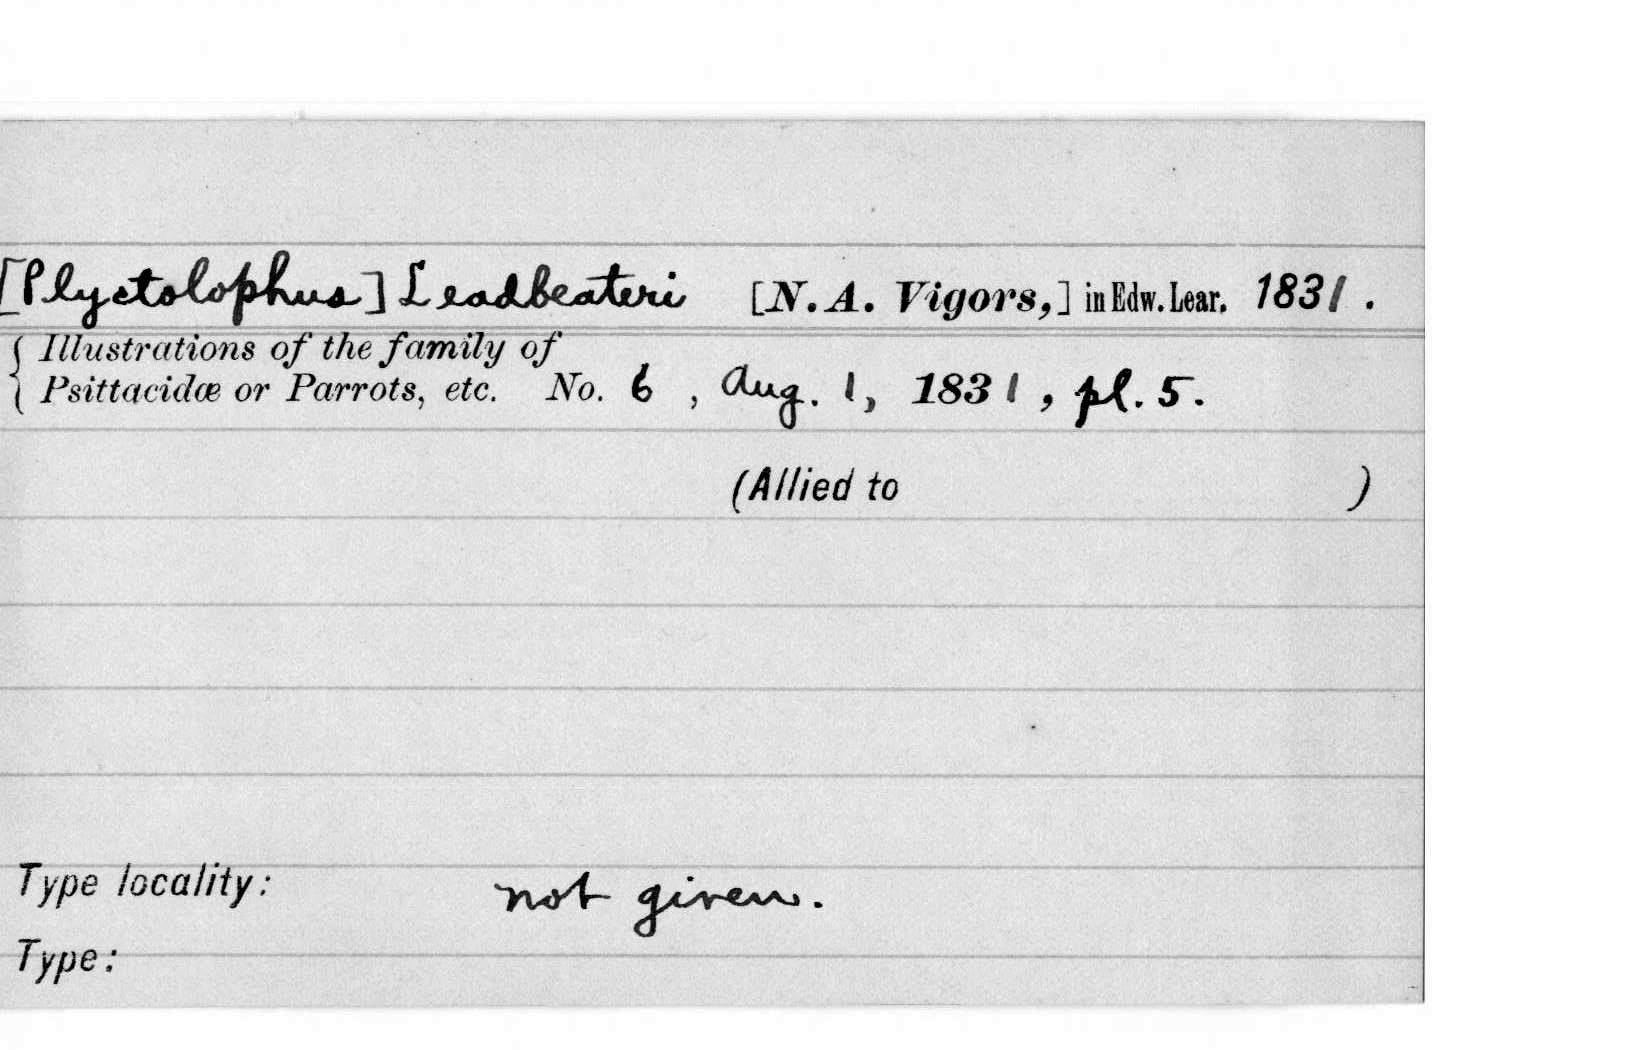 [Plyctolophus] Leadbeateri [N. A. Vigors,] in Edw. Lear. 1831.
Illustrations of the family of
Psittacidæ or Parrots, etc. No. 6, Aug. 1, 1831, pl. 5.
(Allied to )
Type locality: not given.
Type: